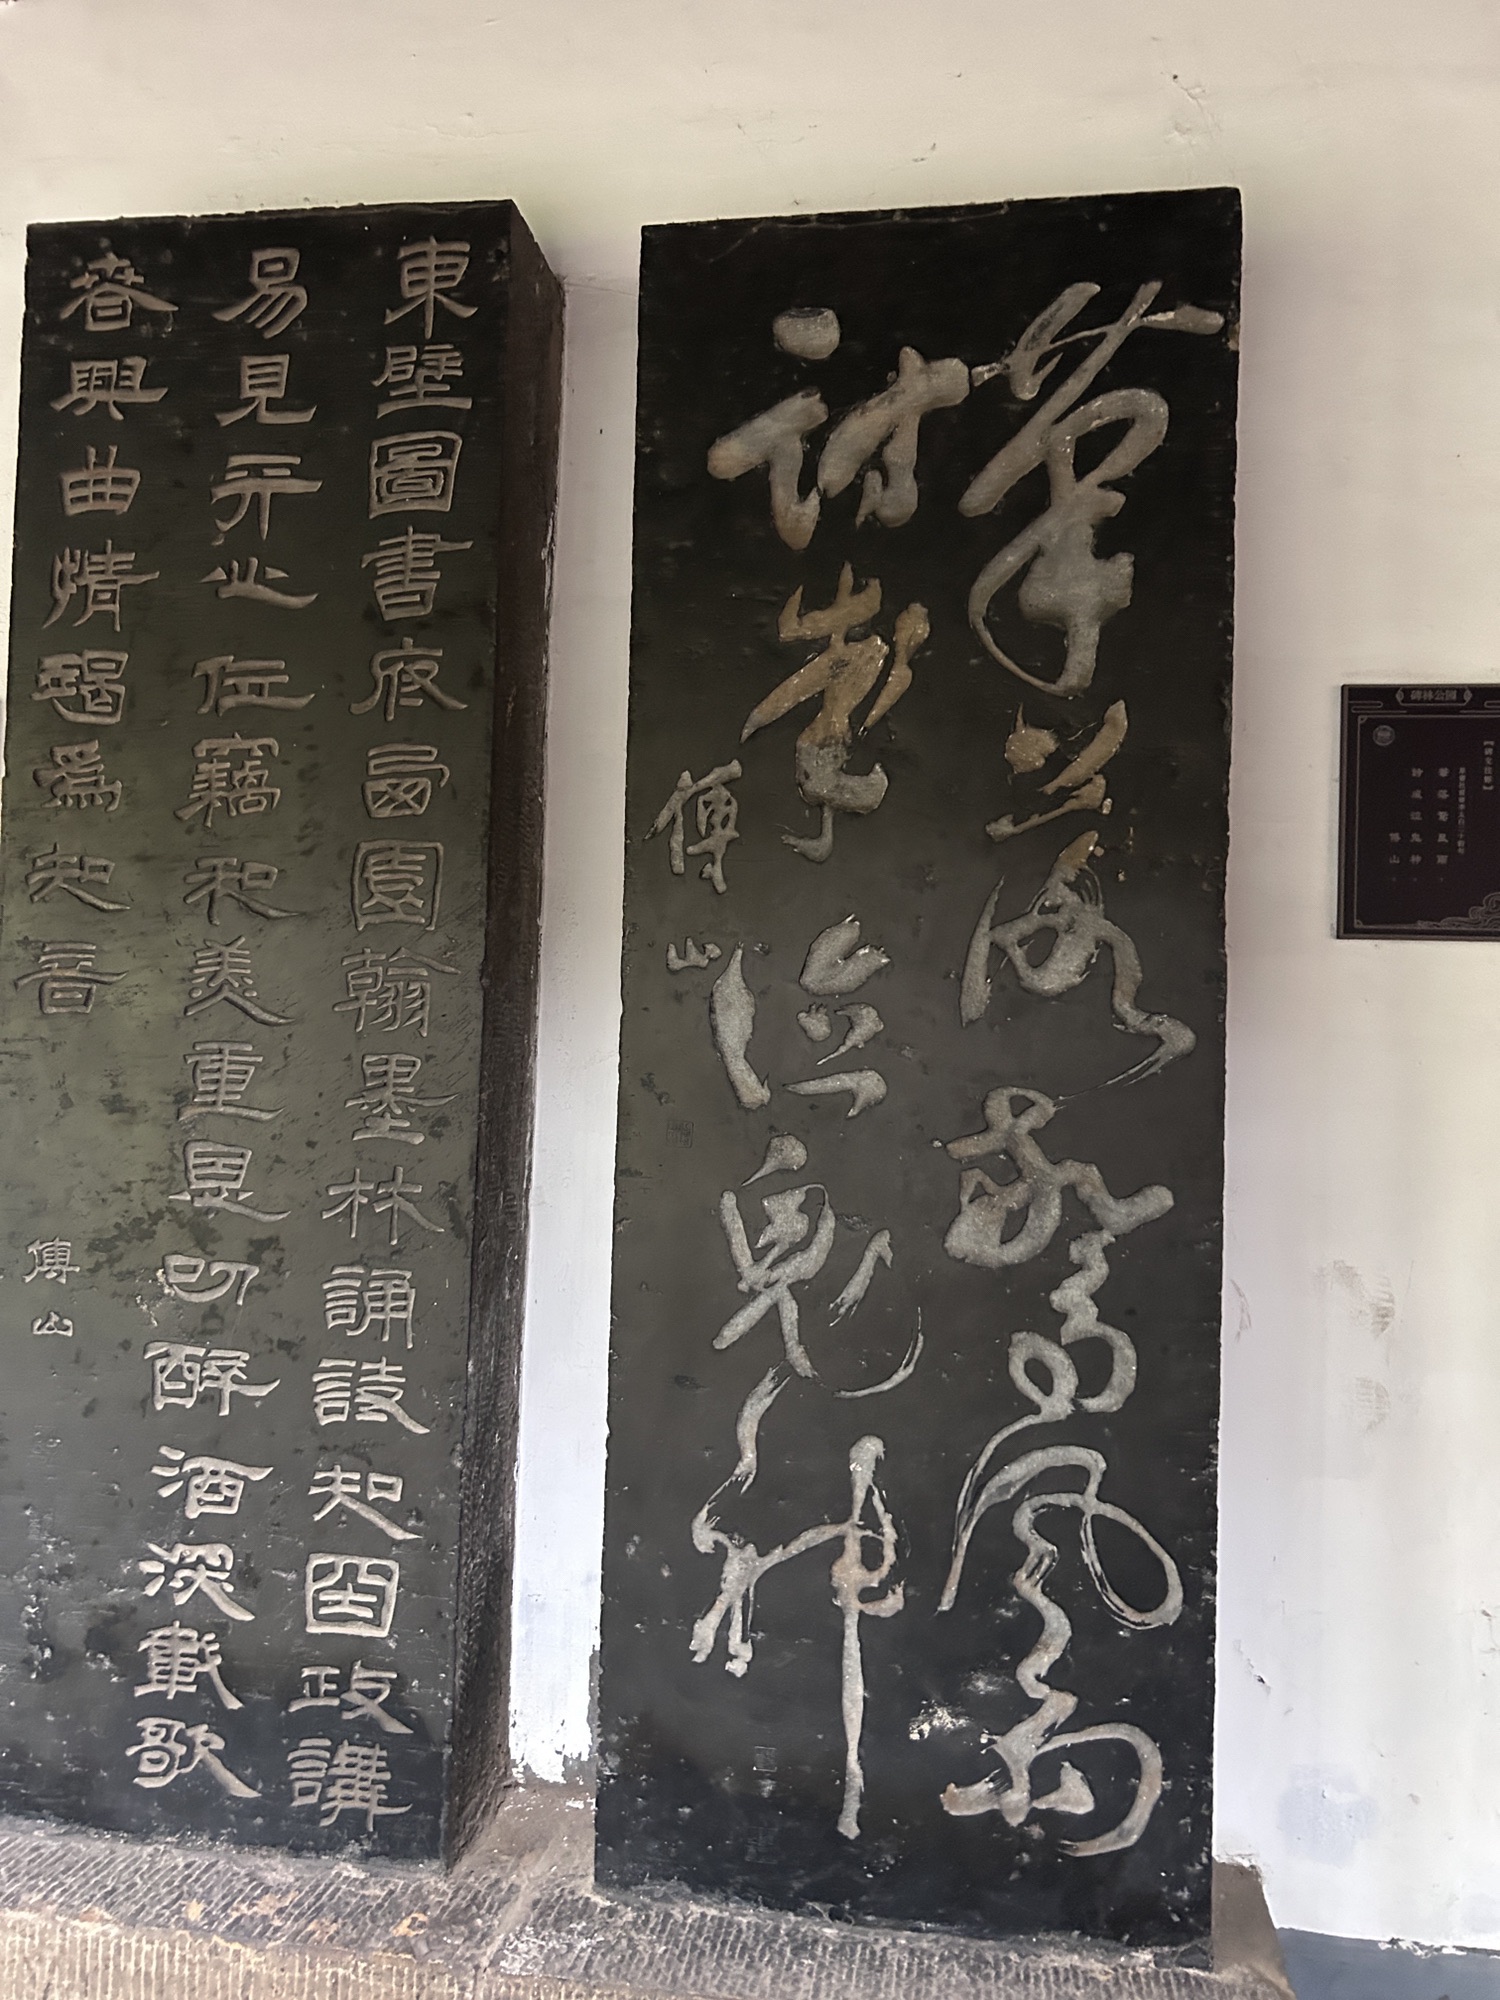 碑林公園
筆落驚風雨
詩成泣鬼神
傅山
筆落驚風雨
詩成泣鬼神
傅山
東壁圖書府西園翰墨林誦詩知國政講
易見天心位竊和羹重恩叨醉酒深載歌
春興曲情竭爲知音
傅山